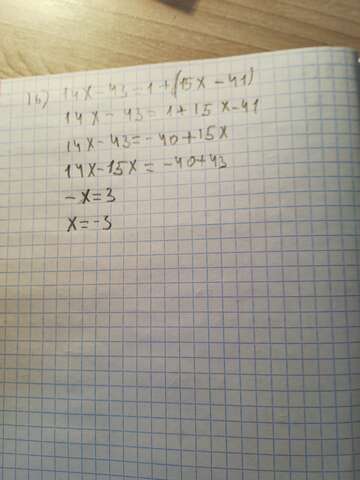 1б) 14x - 43 = 1 + (15x - 41)
14x - 43 = 1 + 15x - 41
14x - 43 = -40 + 15x
14x - 15x = -40 + 43
-x = 3
x = -3